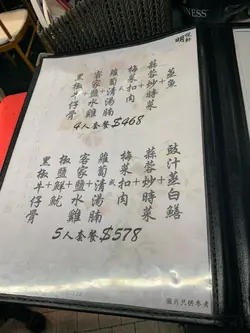 黑椒牛仔骨
+
客家鹽水雞
+
蘿蔔清湯腩
或
梅菜扣肉
+
蒜蓉炒時菜
+
蒸魚
4人套餐$468
黑椒牛仔骨
+
椒鹽鮮魷
+
客家鹽水雞
+
蘿蔔清湯腩
或
梅菜扣肉
+
蒜蓉炒時菜
+
豉汁蒸白鱔
5人套餐$578
圖片只供參考